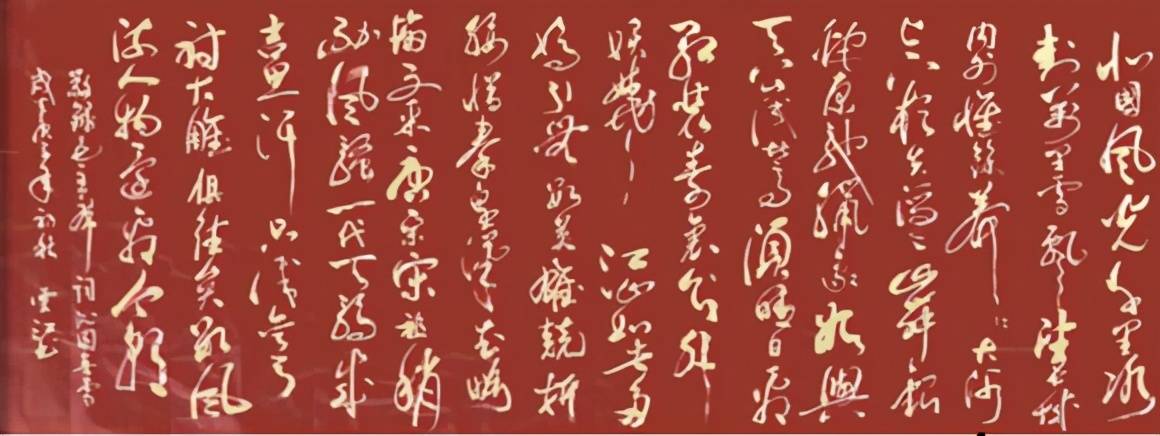 北國風光千里冰
封萬里雪飘望长城
内外惟餘莽莽大河
上下顿失滔滔山舞銀
蛇原馳蠟象欲與
天公试比高須晴日看
红装素裹分外
妖娆江山如此多
娇引无数英雄竞折
腰惜秦皇漢武略
输文采唐宗宋祖稍
逊風骚一代天骄成
吉思汗只识弯弓
射大雕俱往矣数風
流人物还看今朝
敬録毛主席词沁园春雪
庚子年初秋